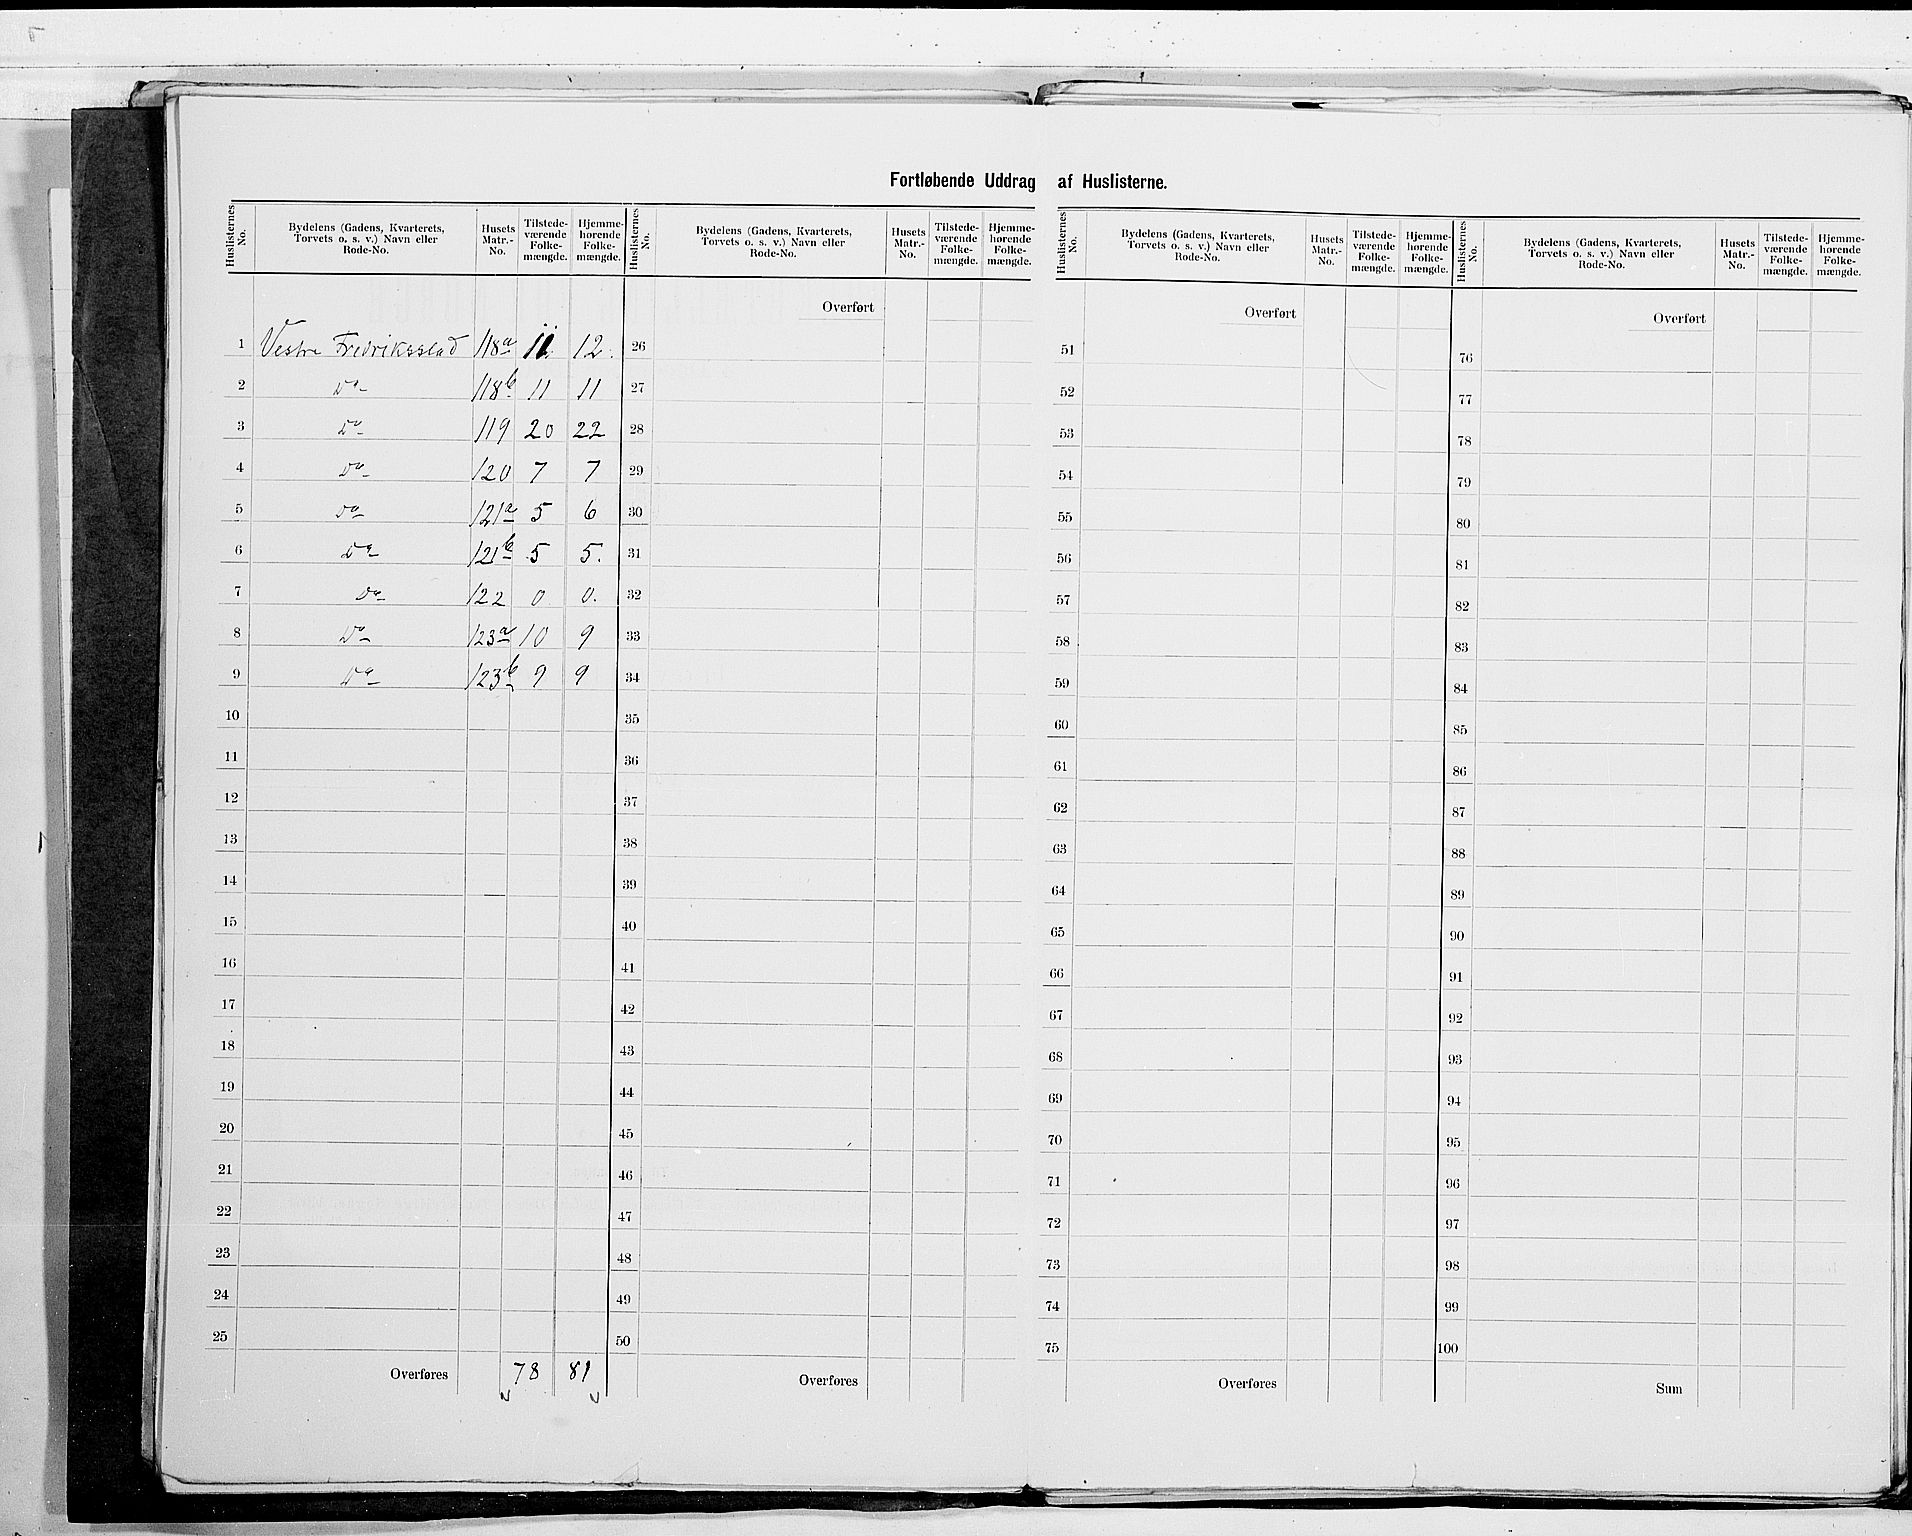 Fortløbende Uddrag af Huslisterne.
Huslisternes No. Bydelens (Gadens, Kvarterets, Torvets o. s. v.) Navn eller Rode-No. Husets Matr.-No. Tilstedeværende Folkemængde. Hjemmehørende Folkemængde.
1 Vestre Fredriksstad 118a 11 12.
2 Do 118b 11 11
3 Do 119 20 22
4 Do 120 7 7
5 Do 121a 5 6
6 Do 121b 5 5.
7 Do 122 0 0.
8 Do 123a 10 9
9 Do 123b 9 9
10
11
12
13
14
15
16
17
18
19
20
21
22
23
24
25
Overføres 78 81
Huslisternes No. Bydelens (Gadens, Kvarterets, Torvets o. s. v.) Navn eller Rode-No. Husets Matr.-No. Tilstedeværende Folkemængde. Hjemmehørende Folkemængde.
Overført
26
27
28
29
30
31
32
33
34
35
36
37
38
39
40
41
42
43
44
45
46
47
48
49
50
Overføres
Huslisternes No. Bydelens (Gadens, Kvarterets, Torvets o. s. v.) Navn eller Rode-No. Husets Matr.-No. Tilstedeværende Folkemængde. Hjemmehørende Folkemængde.
Overført
51
52
53
54
55
56
57
58
59
60
61
62
63
64
65
66
67
68
69
70
71
72
73
74
75
Overføres
Huslisternes No. Bydelens (Gadens, Kvarterets, Torvets o. s. v.) Navn eller Rode-No. Husets Matr.-No. Tilstedeværende Folkemængde. Hjemmehørende Folkemængde.
Overført
76
77
78
79
80
81
82
83
84
85
86
87
88
89
90
91
92
93
94
95
96
97
98
99
100
Sum